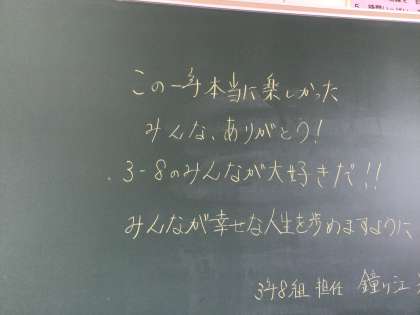 この一年本当に楽しかった
みんな、ありがとう！
3-8のみんなが大好きだ！！
みんなが幸せな人生を歩めますように
3年8組 担任